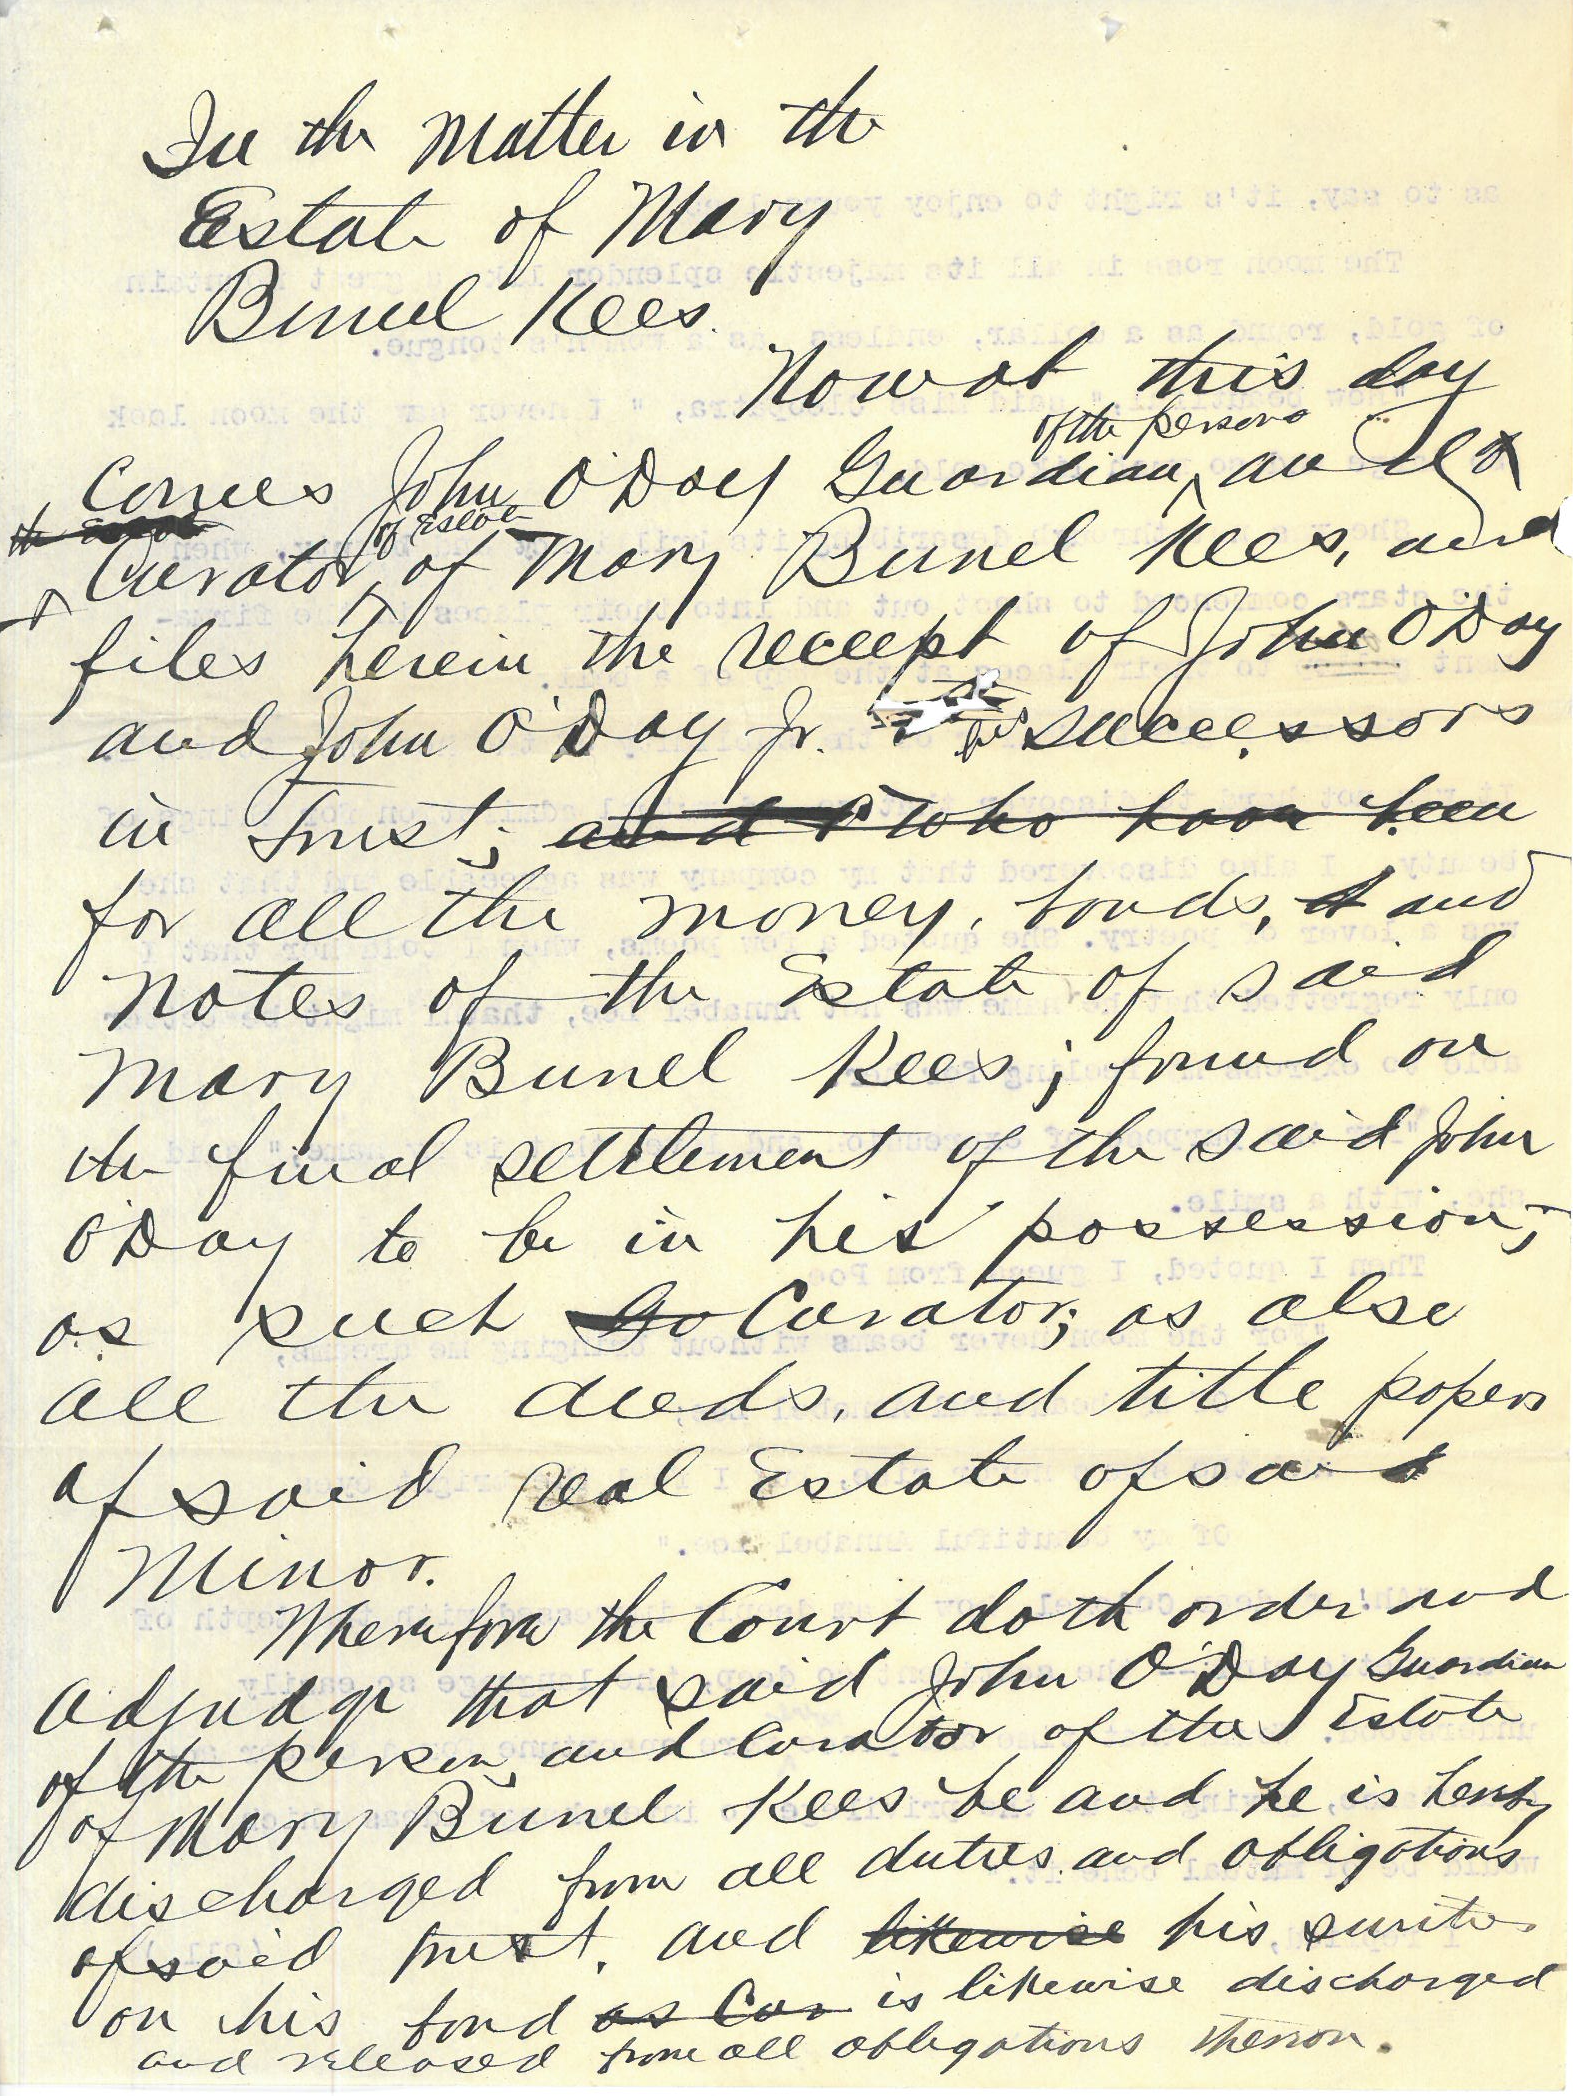 In the Matter in the
Estate of Mary
Bunel Kees.
Now at this day
of the person
Comes John O'Day Guardian, and
of Estate
Curator, of Mary Bunel Kees, and
files herein the receipt of John O'Day
and John O'Day Jr. his successors
in trust; and who have been
for all the money, bonds, and
notes of the Estate of said
Mary Bunel Kees; found on
the final settlement of the said John
O'Day to be in his possession;
as such Curator; as also
all the deeds, and title papers
of said real Estate of said
Minor.
Wherefore the Court doth order and
adjudge that said John O'Day Guardian
of the person, and Curator of the Estate
of Mary Bunel Kees be and he is hereby
discharged from all duties and obligations
of said trust, and likewise his surities
on his bond as Cur is likewise discharged
and released from all obligations thereon.